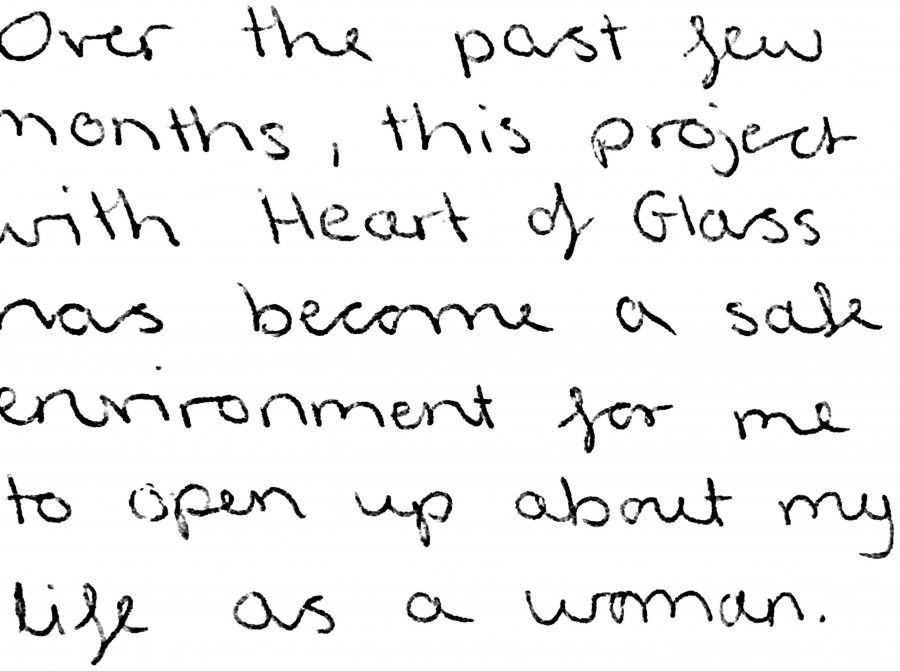 Over the past few
months, this project
with Heart of Glass
has become a safe
environment for me
to open up about my
life as a woman.